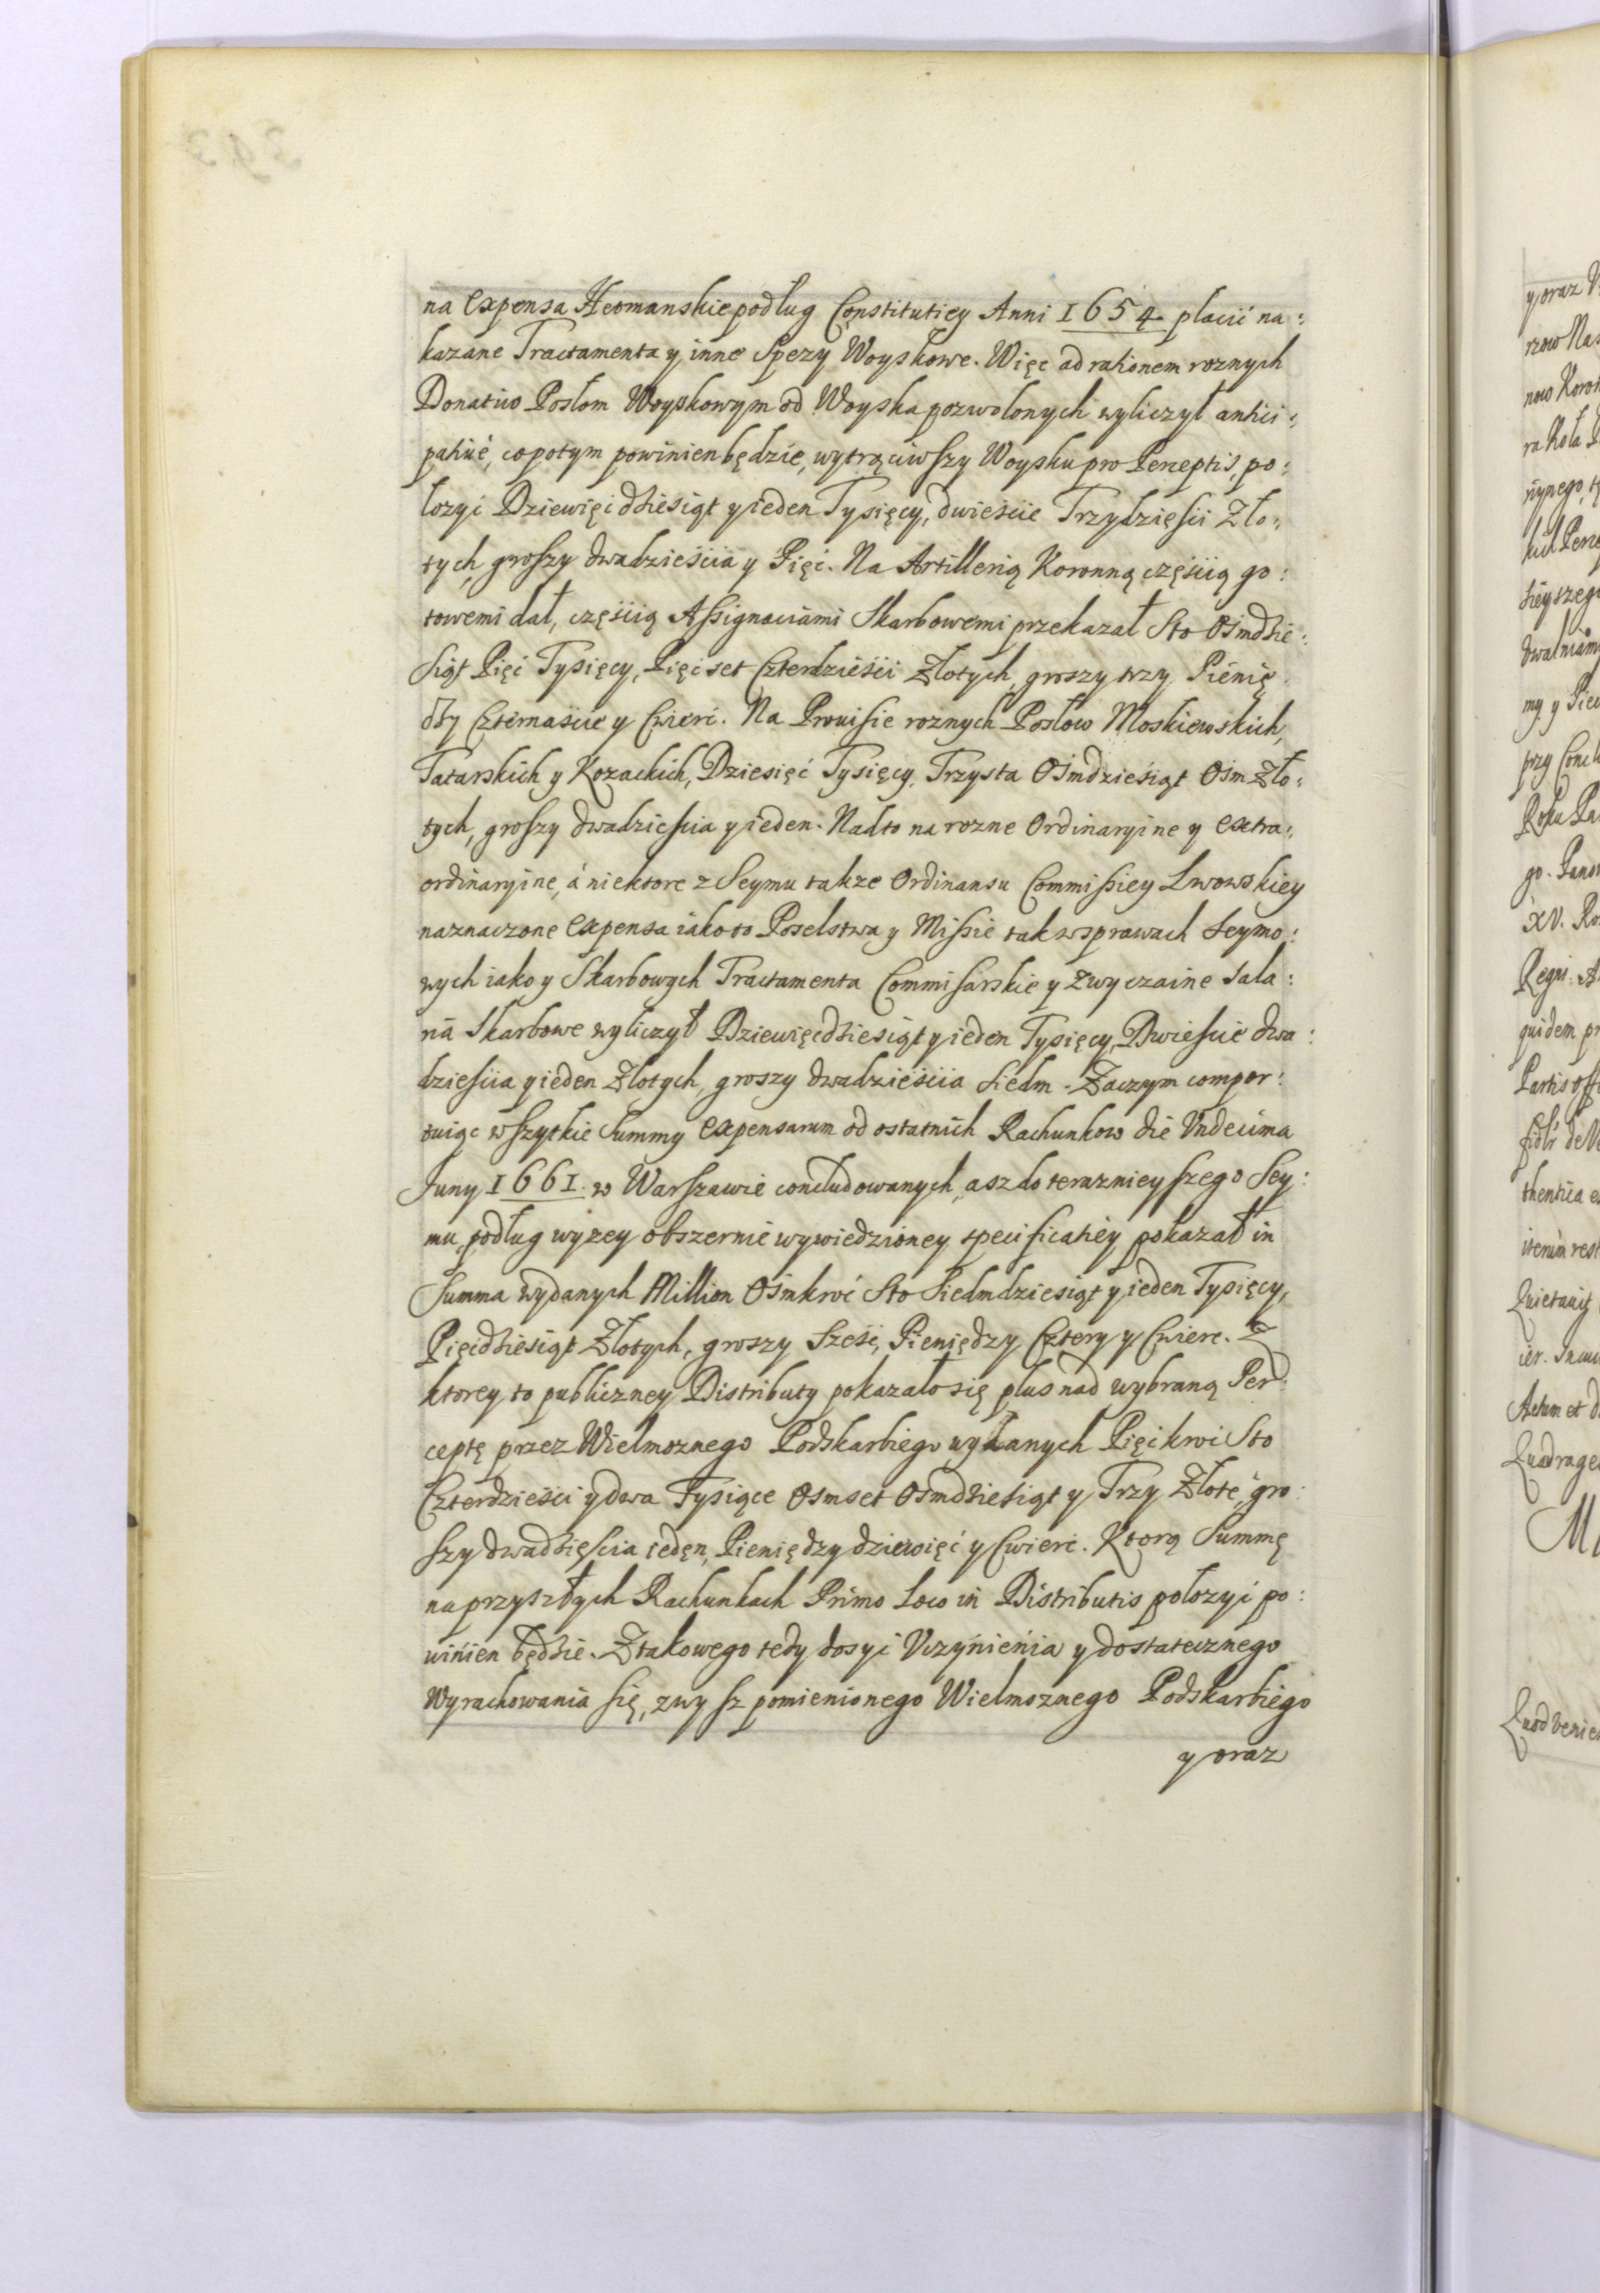 na Expensa Hetmanskie podług Constitutiey Anni 1654 placić na:
kazane Tractamenta y inne Spezy Woyskowe. Więc ad rationem roznych
Donativo Posłom Woyskowym od Woyska pozwolonych wyliczył antici:
patiué, co potym powinien będzie, wytrąciwszy Woysku pro Perceptis, po:
łozyć Dziewięćdziesiąt y ieden Tysięcy, dwieście Trzydzieści Zło:
tych, groszy dwadzieścia y Pięć. Na Artillerią Koronną częścią go:
towemi dał, częścią Assignaciami Skarbowemi przekazał Sto Ośmdzie:
siąt Pięć Tysięcy, Pięćset Czterdzieści Złotych, groszy trzy Pienię:
dzy Czternaście y Cwierć. Na Prouisie roznych Posłow Moskiewskich,
Tatarskich y Kozackich, Dziesięć Tysięcy, Trzysta Ośmdziesiąt Ośm Zło:
tych, groszy dwadziescia y ieden. Nadto na rozne Ordinaryine y extra:
ordinaryine, á niektore z Seymu takze Ordinansu Commissiey Lwowskiey
naznaczone Expensa iako to Poselstwa y Missie tak w sprawach Seymo:
wych iako y Skarbowych Tractamenta Commisarskie y zwyczaine Sala:
ria Skarbowe wyliczył Dziewięćdziesiąt y ieden Tysięcy, Dwieście dwa:
dzieścia y ieden Złotych, groszy dwadzieścia siedm. Zaczym compor:
tuiąc wszytkie Summy Expensarum od ostatnich Rachunkow die Undecima
Juny 1661. w Warszawie concludowanych, asz do terazniey szego Sey:
mu, podług wyzey obszernie wywiedzioney specificatiey pokazał in
Summa wydanych Million Ośmkroć Sto Siedmdziesiąt y ieden Tysięcy,
Pięćdziesiąt Złotych, groszy Sześć, Pieniędzy Cztery y Cwierc. Z
ktorey to publiczney Distributy pokazało się plus nad wybraną Per:
ceptę przez Wielmoznego Podskarbiego wydanych Pięćkroć Sto
Czterdzieści y dwa Tysiące Osmset Ośmdziesiąt y Trzy Złote, gro:
szy dwadzieścia ieden, Pieniędzy dziewięć y Cwierć. Ktorą Summę
na przyszłych Rachunkach Primo Loco in Distributis połozyć po:
winien będzie. Z takowego tedy dosyć Uczynienia y dostatecznego
Wyrachowania się, zwysz pomienionego Wielmoznego Podskarbiego
y oraz